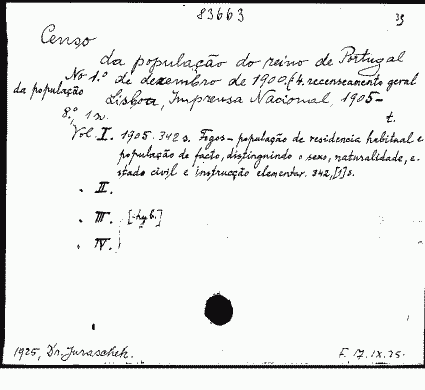 83663 39
Censo
da população do reino de Portugal
No 1.º de dezembro de 1900. (4. recenseamento geral
da população Lisboa, Imprensa Nacional, 1905-
8.º, 1 t.
Vol. I. 1905. 342 s. Fogos - população de residencia habitual e
população de facto, distinguindo o sexo, naturalidade, e-
stado civil e instrucção elementar. 342, [1] s.
" II.
" III. [-hyb.]
" IV.
1925, Dr. Juraschek. F. 17.IX.25.